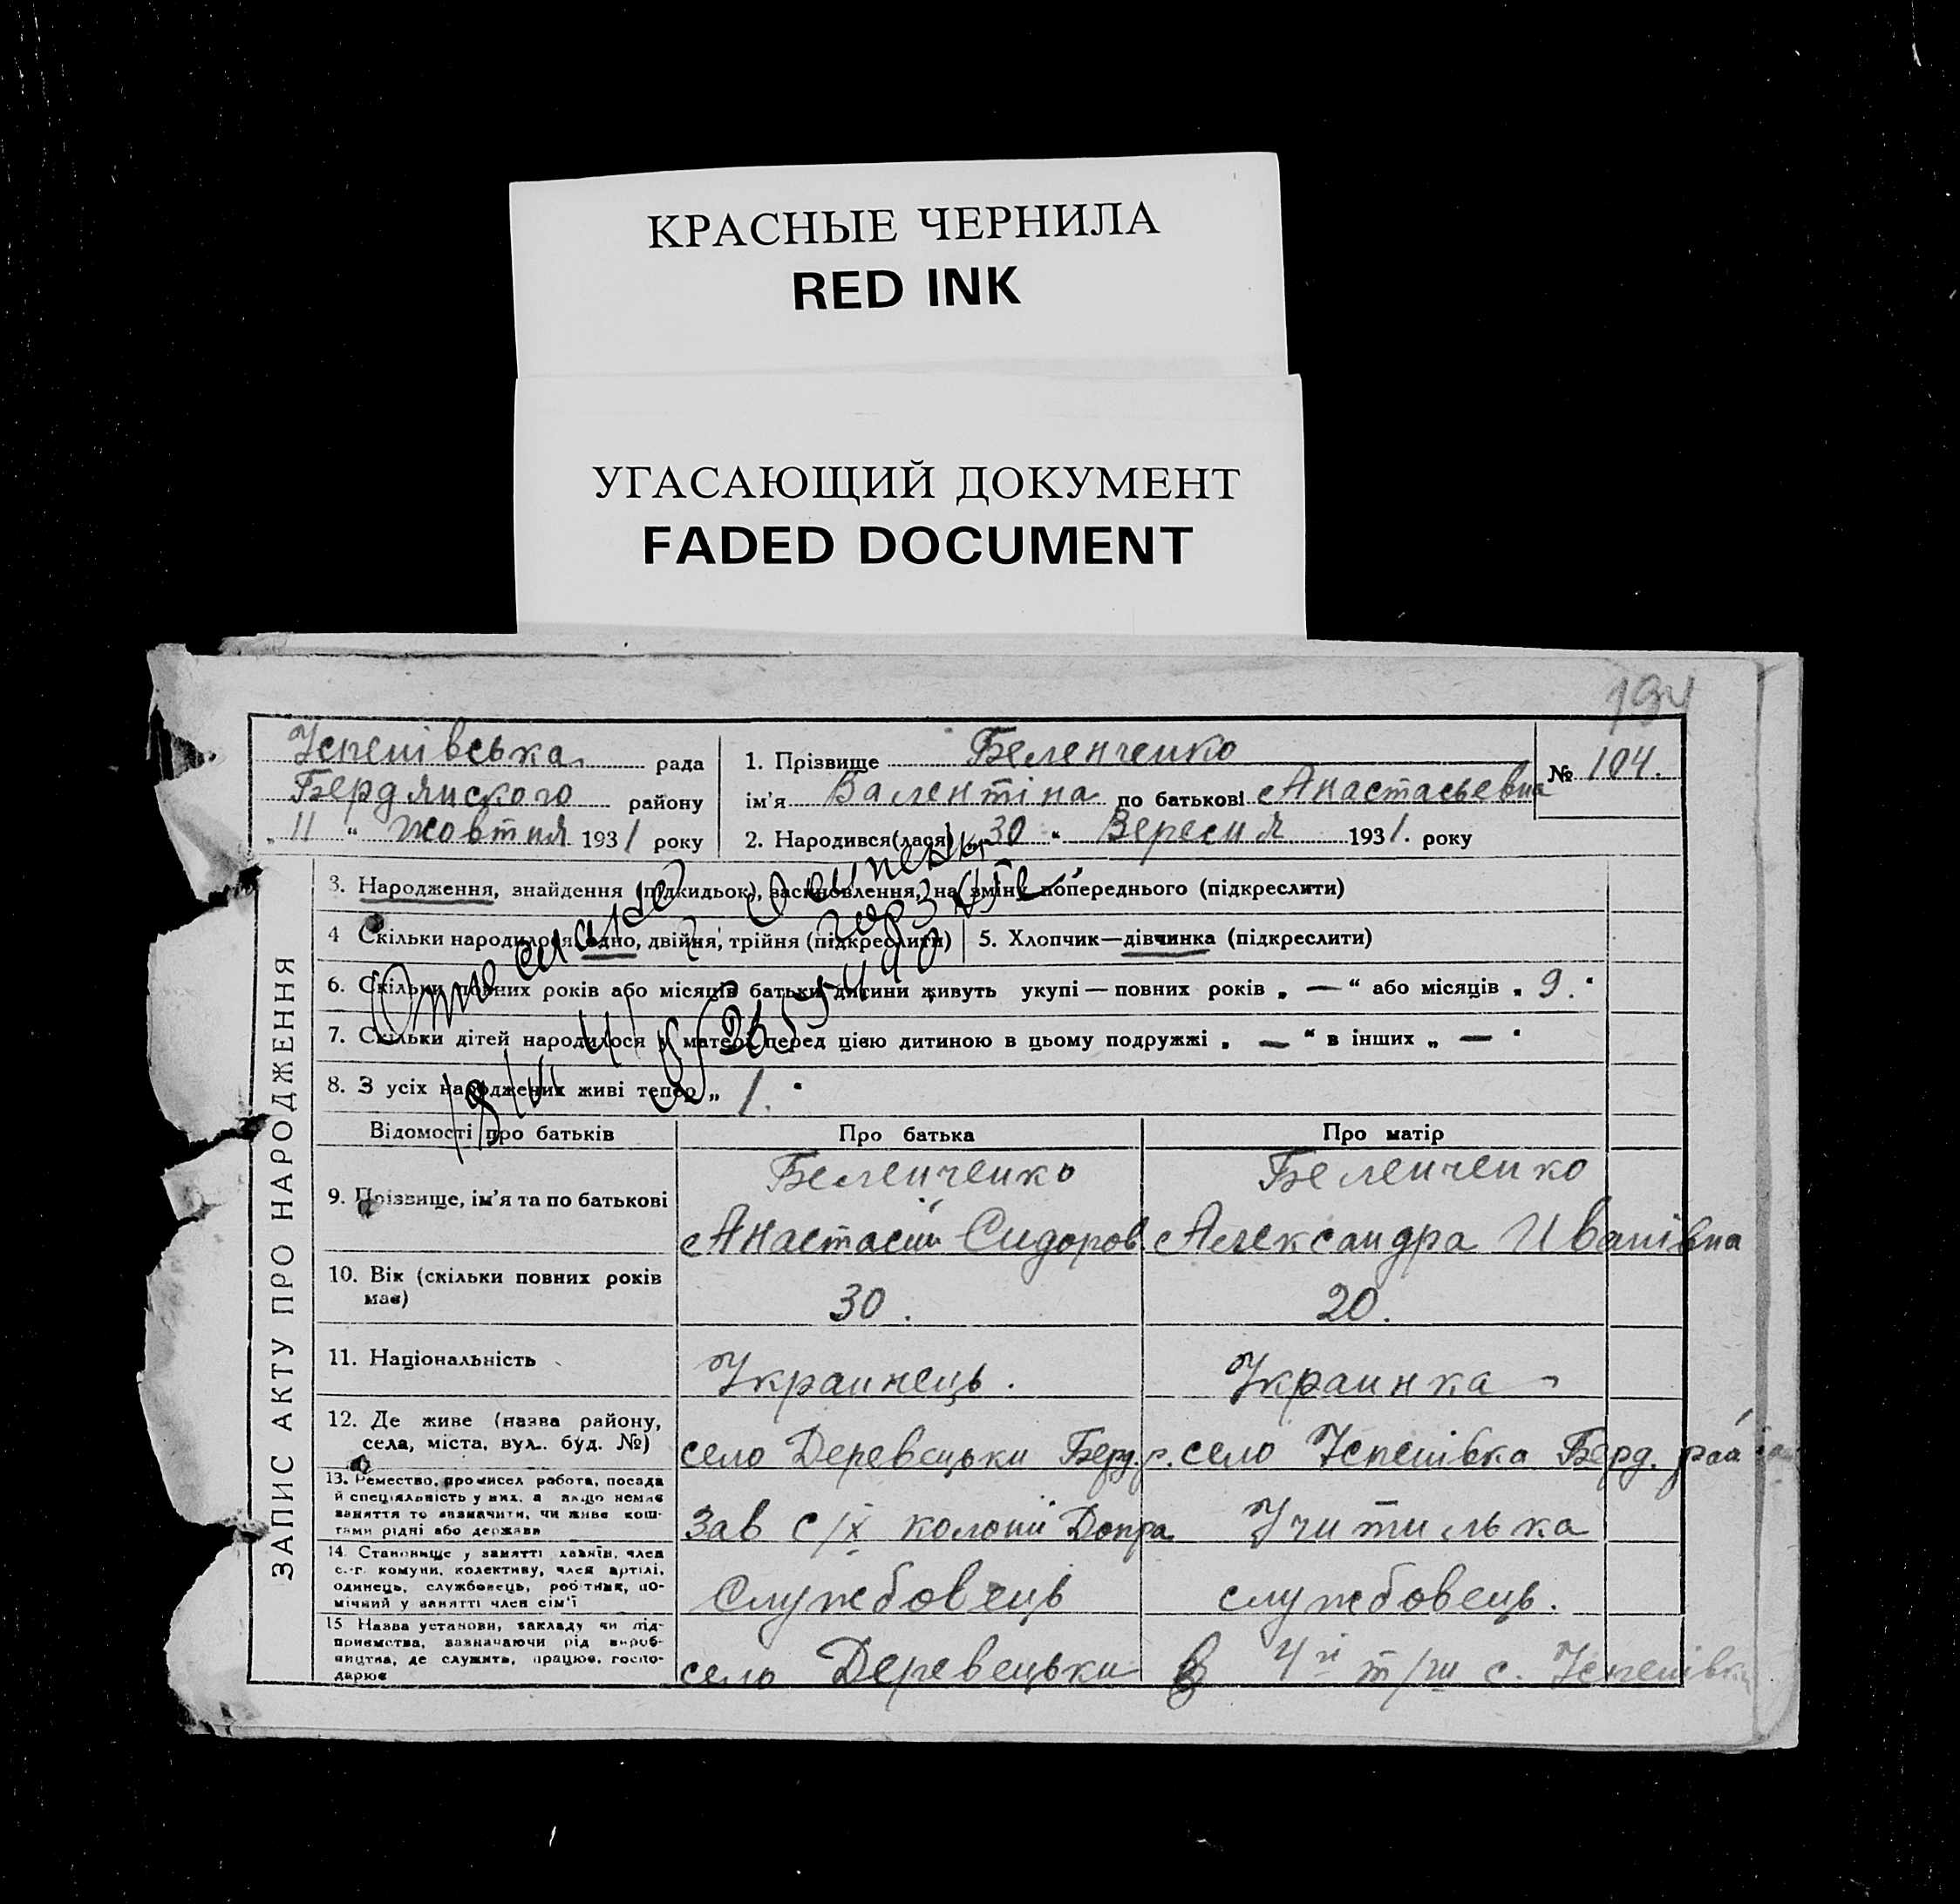 КРАСНЫЕ ЧЕРНИЛА
RED INK
УГАСАЮЩИЙ ДОКУМЕНТ
FADED DOCUMENT
194
Успенівська рада
Бердянского району
„ 11 “ жовтня 1931 року
1. Прізвище Беленченко
ім'я Валентіна по батькові Анастасьевна
2. Народився(лася) „ 30 “ Вересня 1931. року
№ 104.
ЗАПИС АКТУ ПРО НАРОДЖЕННЯ
3. Народження, знайдення (підкидьок), засиновлення, на зміну попереднього (підкреслити)
4 Скільки народилося: одно, двійня, трійня (підкреслити)
5. Хлопчик—дівчинка (підкреслити)
6. Скільки повних років або місяців батьки дитини живуть укупі — повних років „ — “ або місяців „ 9. “
7. Скільки дітей народилося у матери перед цією дитиною в цьому подружжі „ — “ в інших „ — “
8. З усіх народжених живі тепер „ 1. “
Відомості про батьків
Про батька
Про матір
9. Прізвище, ім'я та по батькові
Беленченко
Анастасій Сидоров.
Беленченко
Александра Иванівна
10. Вік (скільки повних років
має)
30.
20.
11. Національність
Украинець.
Украинка
12. Де живе (назва району,
села, міста, вул. буд. №)
село Деревецьки Берд. р.
село Успенівка Берд. рай
13. Ремество, промисел робота, посада
й спеціяльність у них, а якщо немає
заняття то зазначити, чи живе кош-
тами рідні або держави
Зав с/х колонії Допра
Учителька
14. Становище у занятті хазяїн, член
с.-г. комуни, колективу, член артілі,
одинець, службовець, робітник, по-
мічний у занятті член сім'ї
Службовець
службовець.
15 Назва установи, закладу чи під-
приємства, зазначаючи рід вироб-
ництва, де служить, працює, госпо-
дарює
село Деревецьки
в с. Успенівки